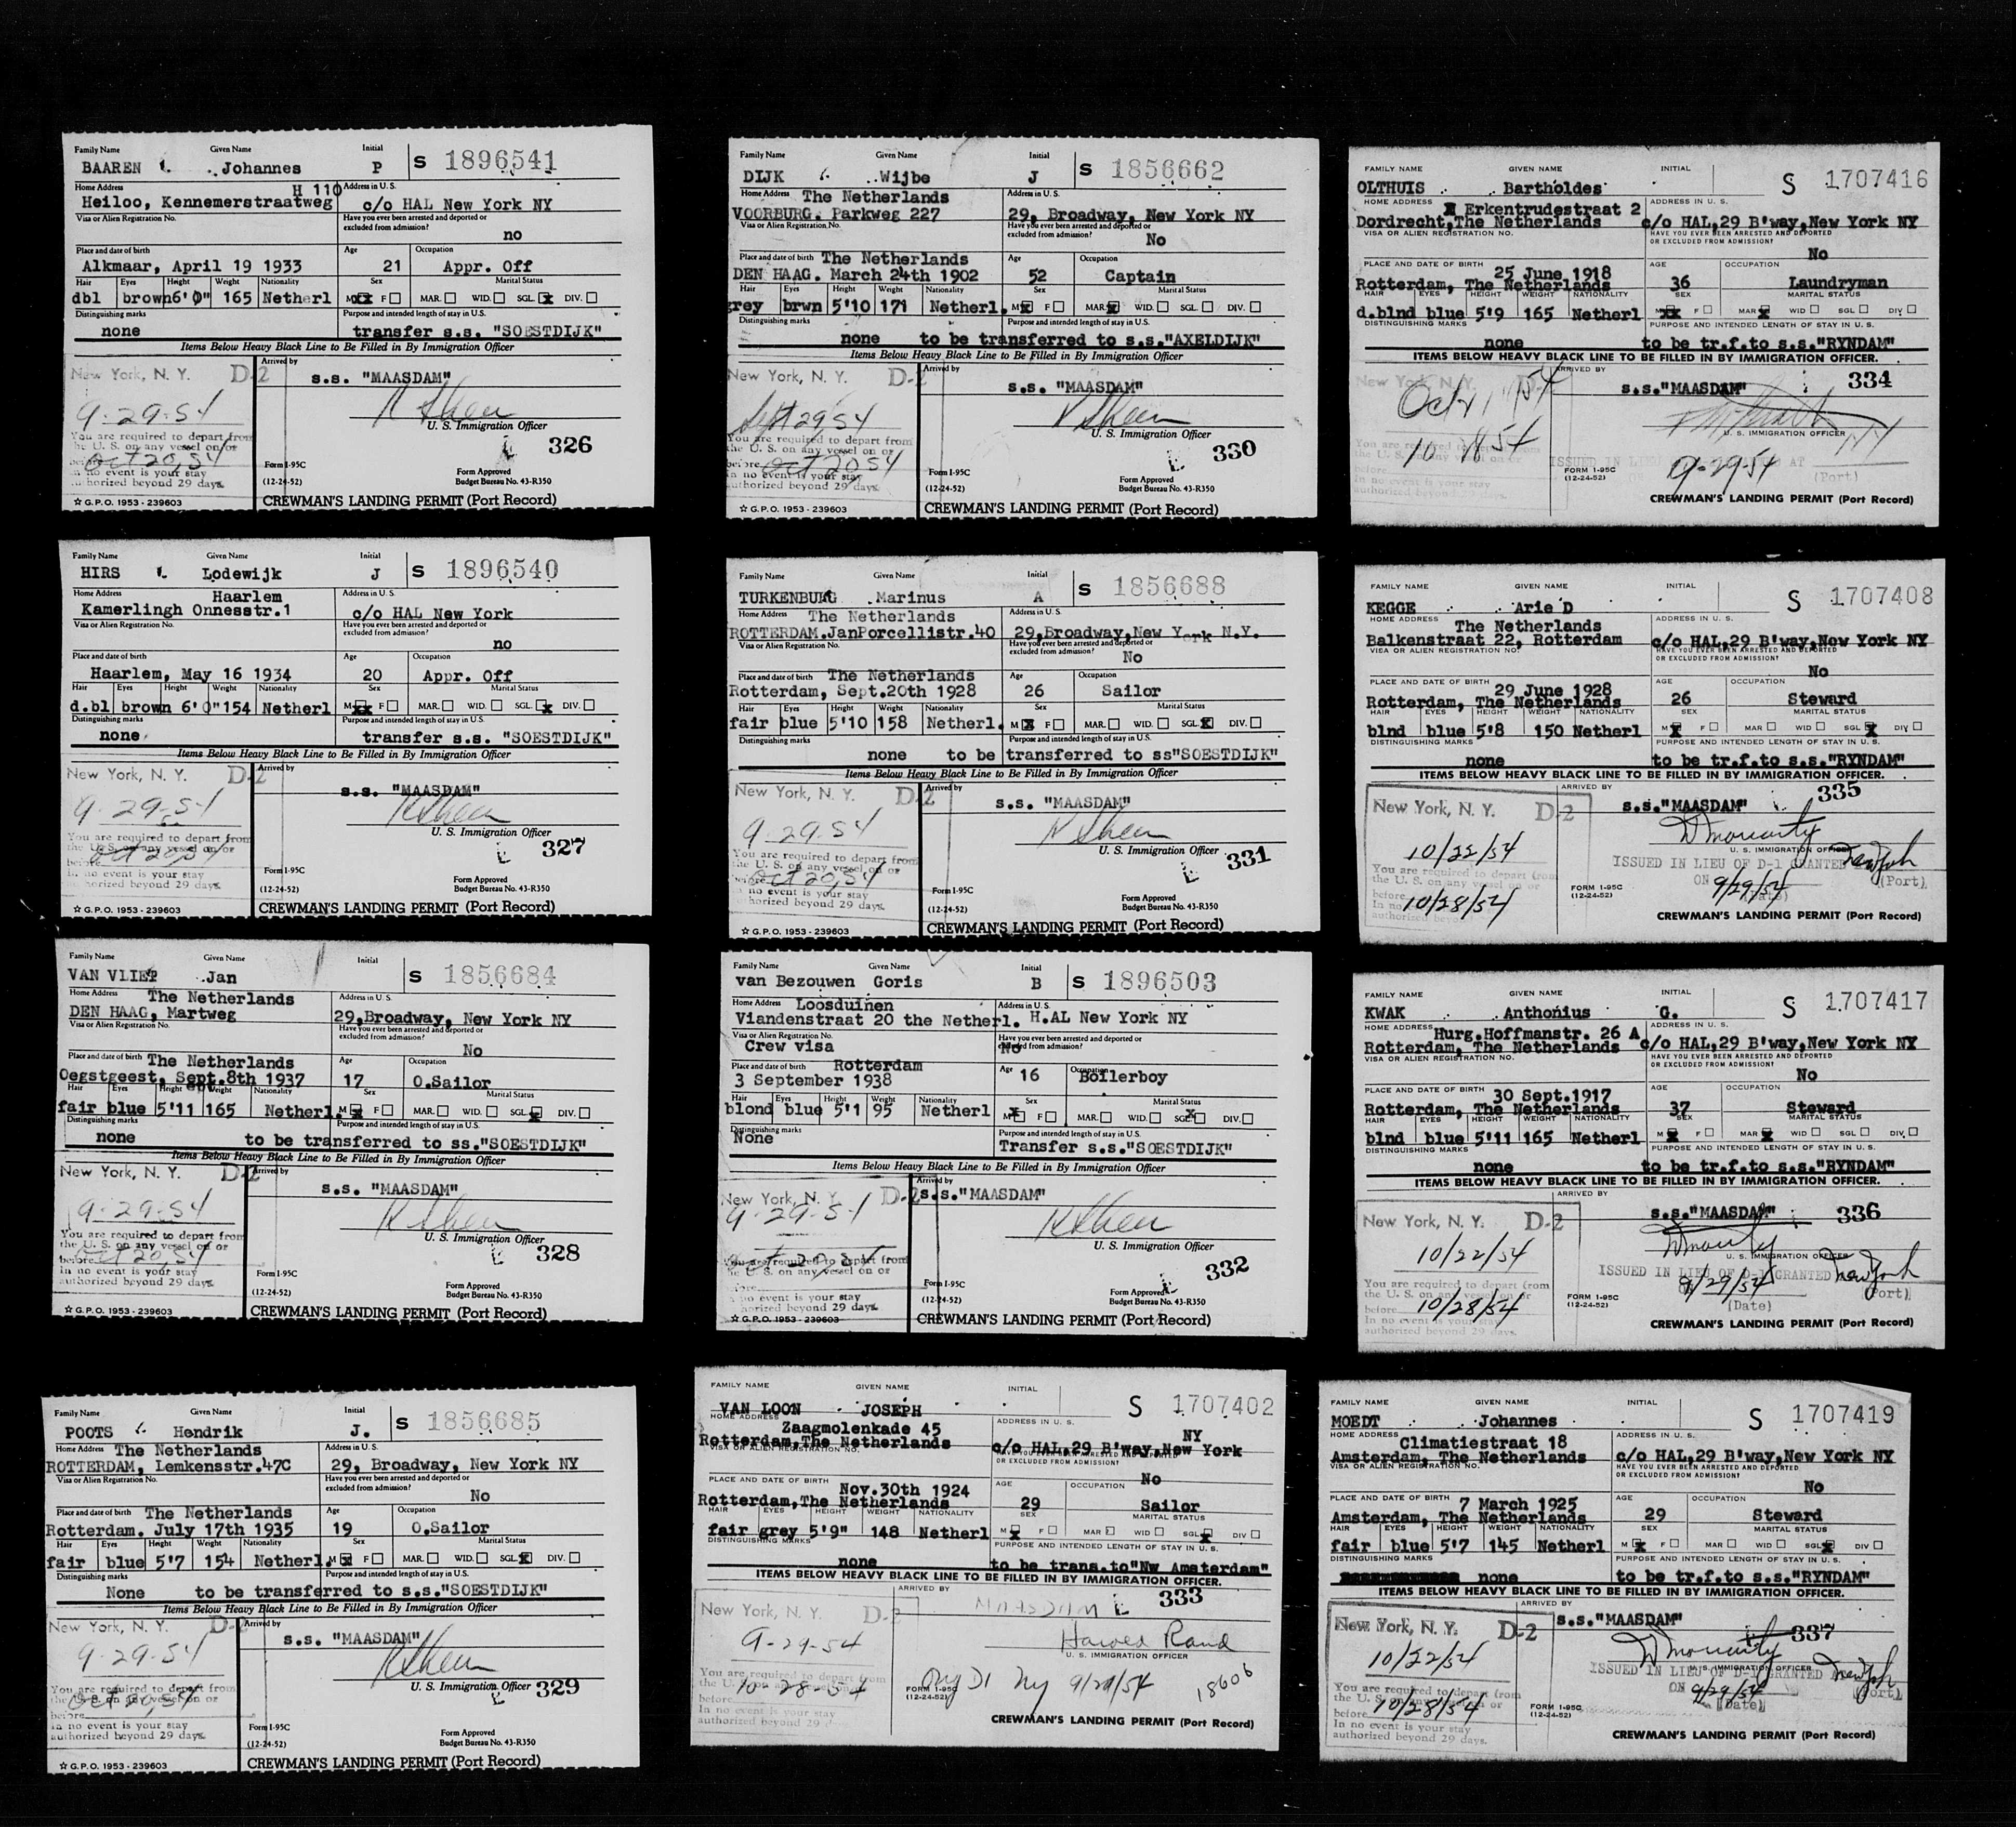 Family Name Given Name Initial
BAAREN Johannes P S 1896541
Home Address H 110 Address in U. S.
Heiloo, Kennemerstraatweg c/o HAL New York NY
Visa or Alien Registration No. Have you ever been arrested and deported or
excluded from admission?
no
Place and date of birth Age Occupation
Alkmaar, April 19 1933 21 Appr. Off
Hair Eyes Height Weight Nationality Sex Marital Status
dbl brown 6'0" 165 Netherl M F MAR. WID. SGL. DIV.
Distinguishing marks Purpose and intended length of stay in U.S.
none transfer s.s. "SOESTDIJK"
Items Below Heavy Black Line to Be Filled in By Immigration Officer
New York, N. Y. D-2 Arrived by
s.s. "MAASDAM"
9-29-54
U. S. Immigration Officer
You are required to depart from
the U. S. on any vessel on or
before Oct 20, 54
In no event is your stay
authorized beyond 29 days.
326
Form I-95C Form Approved
(12-24-52) Budget Bureau No. 43-R350
☆ G.P.O. 1953 - 239603 CREWMAN'S LANDING PERMIT (Port Record)
Family Name Given Name Initial
HIRS Lodewijk J S 1896540
Home Address Haarlem Address in U. S.
Kamerlingh Onnesstr.1 c/o HAL New York
Visa or Alien Registration No. Have you ever been arrested and deported or
excluded from admission?
no
Place and date of birth Age Occupation
Haarlem, May 16 1934 20 Appr. Off
Hair Eyes Height Weight Nationality Sex Marital Status
d.bl brown 6'0" 154 Netherl M F MAR. WID. SGL. DIV.
Distinguishing marks Purpose and intended length of stay in U.S.
none transfer s.s. "SOESTDIJK"
Items Below Heavy Black Line to Be Filled in By Immigration Officer
New York, N. Y. D-2 Arrived by
s.s. "MAASDAM"
9-29-54
U. S. Immigration Officer
You are required to depart from
the U. S. on any vessel on or
before Oct 20, 54
In no event is your stay
authorized beyond 29 days
327
Form I-95C Form Approved
(12-24-52) Budget Bureau No. 43-R350
☆ G.P.O. 1953 - 239603 CREWMAN'S LANDING PERMIT (Port Record)
Family Name Given Name Initial
VAN VLIET Jan S 1856684
Home Address The Netherlands Address in U. S.
DEN HAAG, Martweg 29,Broadway, New York NY
Visa or Alien Registration No. Have you ever been arrested and deported or
excluded from admission?
No
Place and date of birth The Netherlands Age Occupation
Oegstgeest, Sept.8th 1937 17 O.Sailor
Hair Eyes Height Weight Nationality Sex Marital Status
fair blue 5'11 165 Netherl. M F MAR. WID. SGL. DIV.
Distinguishing marks Purpose and intended length of stay in U.S.
none to be transferred to ss."SOESTDIJK"
Items Below Heavy Black Line to Be Filled in By Immigration Officer
New York, N. Y. D-2 Arrived by
s.s. "MAASDAM"
9-29-54
U. S. Immigration Officer
You are required to depart from
the U. S. on any vessel on or
before Oct 20, 54
In no event is your stay
authorized beyond 29 days
328
Form I-95C Form Approved
(12-24-52) Budget Bureau No. 43-R350
☆ G.P.O. 1953 - 239603 CREWMAN'S LANDING PERMIT (Port Record)
Family Name Given Name Initial
POOTS Hendrik J. S 1856685
Home Address The Netherlands Address in U. S.
ROTTERDAM, Lemkensstr.47C 29, Broadway, New York NY
Visa or Alien Registration No. Have you ever been arrested and deported or
excluded from admission?
No
Place and date of birth The Netherlands Age Occupation
Rotterdam. July 17th 1935 19 O.Sailor
Hair Eyes Height Weight Nationality Sex Marital Status
fair blue 5'7 154 Netherl. M F MAR. WID. SGL. DIV.
Distinguishing marks Purpose and intended length of stay in U.S.
None to be transferred to s.s."SOESTDIJK"
Items Below Heavy Black Line to Be Filled in By Immigration Officer
New York, N. Y. D-2 Arrived by
s.s. "MAASDAM"
9-29-54
U. S. Immigration Officer
You are required to depart from
the U. S. on any vessel on or
before Oct 20, 54
In no event is your stay
authorized beyond 29 days
329
Form I-95C Form Approved
(12-24-52) Budget Bureau No. 43-R350
☆ G.P.O. 1953 - 239603 CREWMAN'S LANDING PERMIT (Port Record)
Family Name Given Name Initial
DIJK Wijbe J S 1856662
Home Address The Netherlands Address in U. S.
VOORBURG. Parkweg 227 29, Broadway, New York NY
Visa or Alien Registration No. Have you ever been arrested and deported or
excluded from admission?
No
Place and date of birth The Netherlands Age Occupation
DEN HAAG. March 24th 1902 52 Captain
Hair Eyes Height Weight Nationality Sex Marital Status
grey brwn 5'10 171 Netherl. M F MAR. WID. SGL. DIV.
Distinguishing marks Purpose and intended length of stay in U.S.
none to be transferred to s.s."AXELDIJK"
Items Below Heavy Black Line to Be Filled in By Immigration Officer
New York, N. Y. D-2 Arrived by
s.s. "MAASDAM"
Sept 29 54
U. S. Immigration Officer
You are required to depart from
the U. S. on any vessel on or
before Oct 20 54
In no event is your stay
authorized beyond 29 days
330
Form I-95C Form Approved
(12-24-52) Budget Bureau No. 43-R350
☆ G.P.O. 1953 - 239603 CREWMAN'S LANDING PERMIT (Port Record)
Family Name Given Name Initial
TURKENBURG Marinus A S 1856688
Home Address The Netherlands Address in U. S.
ROTTERDAM.JanPorcellistr.40 29,Broadway,New York N.Y.
Visa or Alien Registration No. Have you ever been arrested and deported or
excluded from admission?
No
Place and date of birth The Netherlands Age Occupation
Rotterdam, Sept.20th 1928 26 Sailor
Hair Eyes Height Weight Nationality Sex Marital Status
fair blue 5'10 158 Netherl. M F MAR. WID. SGL. DIV.
Distinguishing marks Purpose and intended length of stay in U.S.
none to be transferred to ss"SOESTDIJK"
Items Below Heavy Black Line to Be Filled in By Immigration Officer
New York, N. Y. D-2 Arrived by
s.s. "MAASDAM"
9-29-54
U. S. Immigration Officer
You are required to depart from
the U. S. on any vessel on or
before Oct 20, 54
In no event is your stay
authorized beyond 29 days
331
Form I-95C Form Approved
(12-24-52) Budget Bureau No. 43-R350
☆ G.P.O. 1953 - 239603 CREWMAN'S LANDING PERMIT (Port Record)
Family Name Given Name Initial
van Bezouwen Goris B S 1896503
Home Address Loosduinen Address in U. S.
Viandenstraat 20 the Netherl. H.AL New York NY
Visa or Alien Registration No. Have you ever been arrested and deported or
Crew visa No excluded from admission?
Place and date of birth Rotterdam Age Occupation
3 September 1938 16 Boilerboy
Hair Eyes Height Weight Nationality Sex Marital Status
blond blue 5'1 95 Netherl M F MAR. WID. SGL. DIV.
Distinguishing marks Purpose and intended length of stay in U.S.
None Transfer s.s."SOESTDIJK"
Items Below Heavy Black Line to Be Filled in By Immigration Officer
New York, N. Y. D-2 Arrived by
s.s."MAASDAM"
9-29-54
U. S. Immigration Officer
Oct 20 54
You are required to depart from
the U. S. on any vessel on or
before
In no event is your stay
authorized beyond 29 days
332
Form I-95C Form Approved
(12-24-52) Budget Bureau No. 43-R350
☆ G.P.O. 1953 - 239603 CREWMAN'S LANDING PERMIT (Port Record)
FAMILY NAME GIVEN NAME INITIAL
VAN LOON JOSEPH S 1707402
HOME ADDRESS Zaagmolenkade 45 ADDRESS IN U. S. NY
Rotterdam,The Netherlands c/o HAL,29 B'way,New York
VISA OR ALIEN REGISTRATION NO. HAVE YOU EVER BEEN ARRESTED AND DEPORTED
OR EXCLUDED FROM ADMISSION?
No
PLACE AND DATE OF BIRTH Nov.30th 1924 AGE OCCUPATION
Rotterdam,The Netherlands 29 Sailor
HAIR EYES HEIGHT WEIGHT NATIONALITY SEX MARITAL STATUS
fair grey 5'9" 148 Netherl M F MAR WID SGL DIV
DISTINGUISHING MARKS PURPOSE AND INTENDED LENGTH OF STAY IN U. S.
none to be trans.to"Nw Amsterdam"
ITEMS BELOW HEAVY BLACK LINE TO BE FILLED IN BY IMMIGRATION OFFICER.
New York, N. Y. D-2 ARRIVED BY
MAASDAM 333
9-29-54 Harold Rand
U. S. IMMIGRATION OFFICER
You are required to depart from
10-28-54
before
In no event is your stay
authorized beyond 29
D1 NY 9/29/54 18606
FORM I-95C
(12-24-52)
CREWMAN'S LANDING PERMIT (Port Record)
FAMILY NAME GIVEN NAME INITIAL
OLTHUIS Bartholdes S 1707416
HOME ADDRESS Erkentrudestraat 2 ADDRESS IN U. S.
Dordrecht,The Netherlands c/o HAL,29 B'way,New York NY
VISA OR ALIEN REGISTRATION NO. HAVE YOU EVER BEEN ARRESTED AND DEPORTED
OR EXCLUDED FROM ADMISSION?
No
PLACE AND DATE OF BIRTH 25 June 1918 AGE OCCUPATION
Rotterdam, The Netherlands 36 Laundryman
HAIR EYES HEIGHT WEIGHT NATIONALITY SEX MARITAL STATUS
d.blnd blue 5'9 165 Netherl M F MAR WID SGL DIV
DISTINGUISHING MARKS PURPOSE AND INTENDED LENGTH OF STAY IN U. S.
none to be tr.f.to s.s."RYNDAM"
ITEMS BELOW HEAVY BLACK LINE TO BE FILLED IN BY IMMIGRATION OFFICER.
New York, N. Y. D-2 ARRIVED BY
s.s."MAASDAM" 334
U. S. IMMIGRATION OFFICER
You are required to depart from
before
In no event is your stay
authorized beyond 29 days
ISSUED IN LIEU AT NY
9-29-54 (Port)
FORM I-95C
(12-24-52)
CREWMAN'S LANDING PERMIT (Port Record)
FAMILY NAME GIVEN NAME INITIAL
KEGGE Arie D S 1707408
HOME ADDRESS The Netherlands ADDRESS IN U. S.
Balkenstraat 22, Rotterdam c/o HAL,29 B'way,New York NY
VISA OR ALIEN REGISTRATION NO. HAVE YOU EVER BEEN ARRESTED AND DEPORTED
OR EXCLUDED FROM ADMISSION?
No
PLACE AND DATE OF BIRTH 29 June 1928 AGE OCCUPATION
Rotterdam, The Netherlands 26 Steward
HAIR EYES HEIGHT WEIGHT NATIONALITY SEX MARITAL STATUS
blnd blue 5'8 150 Netherl M F MAR WID SGL DIV
DISTINGUISHING MARKS PURPOSE AND INTENDED LENGTH OF STAY IN U. S.
none to be tr.f.to s.s."RYNDAM"
ITEMS BELOW HEAVY BLACK LINE TO BE FILLED IN BY IMMIGRATION OFFICER.
New York, N. Y. D-2 ARRIVED BY
s.s."MAASDAM" 335
10/22/54 D Moriarty
U. S. IMMIGRATION OFFICER
You are required to depart from
the U. S. on any vessel on or
before 10/28/54
In no
authorized
ISSUED IN LIEU OF D-1 GRANTED New York
ON 9/29/54 (Date) (Port)
FORM I-95C
(12-24-52)
CREWMAN'S LANDING PERMIT (Port Record)
FAMILY NAME GIVEN NAME INITIAL
KWAK Anthonius G. S 1707417
HOME ADDRESS Hurg.Hoffmanstr. 26 A ADDRESS IN U. S.
Rotterdam, The Netherlands c/o HAL,29 B'way,New York NY
VISA OR ALIEN REGISTRATION NO. HAVE YOU EVER BEEN ARRESTED AND DEPORTED
OR EXCLUDED FROM ADMISSION?
No
PLACE AND DATE OF BIRTH 30 Sept.1917 AGE OCCUPATION
Rotterdam, The Netherlands 37 Steward
HAIR EYES HEIGHT WEIGHT NATIONALITY SEX MARITAL STATUS
blnd blue 5'11 165 Netherl M F MAR WID SGL DIV
DISTINGUISHING MARKS PURPOSE AND INTENDED LENGTH OF STAY IN U. S.
none to be tr.f.to s.s."RYNDAM"
ITEMS BELOW HEAVY BLACK LINE TO BE FILLED IN BY IMMIGRATION OFFICER.
New York, N. Y. D-2 ARRIVED BY
s.s."MAASDAM" 336
10/22/54 D Moriarty
U. S. IMMIGRATION OFFICER
You are required to depart from
the U. S. on any vessel on or
before 10/28/54
In no event is your stay
authorized beyond 29 days
ISSUED IN LIEU OF D-1 GRANTED New York
9/29/54 (Date) (Port)
FORM I-95C
(12-24-52)
CREWMAN'S LANDING PERMIT (Port Record)
FAMILY NAME GIVEN NAME INITIAL
MOEDT Johannes S 1707419
HOME ADDRESS Climatiestraat 18 ADDRESS IN U. S.
Amsterdam, The Netherlands c/o HAL,29 B'way,New York NY
VISA OR ALIEN REGISTRATION NO. HAVE YOU EVER BEEN ARRESTED AND DEPORTED
OR EXCLUDED FROM ADMISSION?
No
PLACE AND DATE OF BIRTH 7 March 1925 AGE OCCUPATION
Amsterdam, The Netherlands 29 Steward
HAIR EYES HEIGHT WEIGHT NATIONALITY SEX MARITAL STATUS
fair blue 5'7 145 Netherl M F MAR WID SGL DIV
DISTINGUISHING MARKS PURPOSE AND INTENDED LENGTH OF STAY IN U. S.
none to be tr.f.to s.s."RYNDAM"
ITEMS BELOW HEAVY BLACK LINE TO BE FILLED IN BY IMMIGRATION OFFICER.
New York, N. Y. D-2 ARRIVED BY
s.s."MAASDAM" 337
10/22/54 D Moriarty
U. S. IMMIGRATION OFFICER
You are required to depart from
the U. S. on any vessel on or
before 10/28/54
In no event is your stay
authorized beyond 29 days.
ISSUED IN LIEU OF D-1 GRANTED New York
ON 9/29/54 (Date) (Port)
FORM I-95C
(12-24-52)
CREWMAN'S LANDING PERMIT (Port Record)